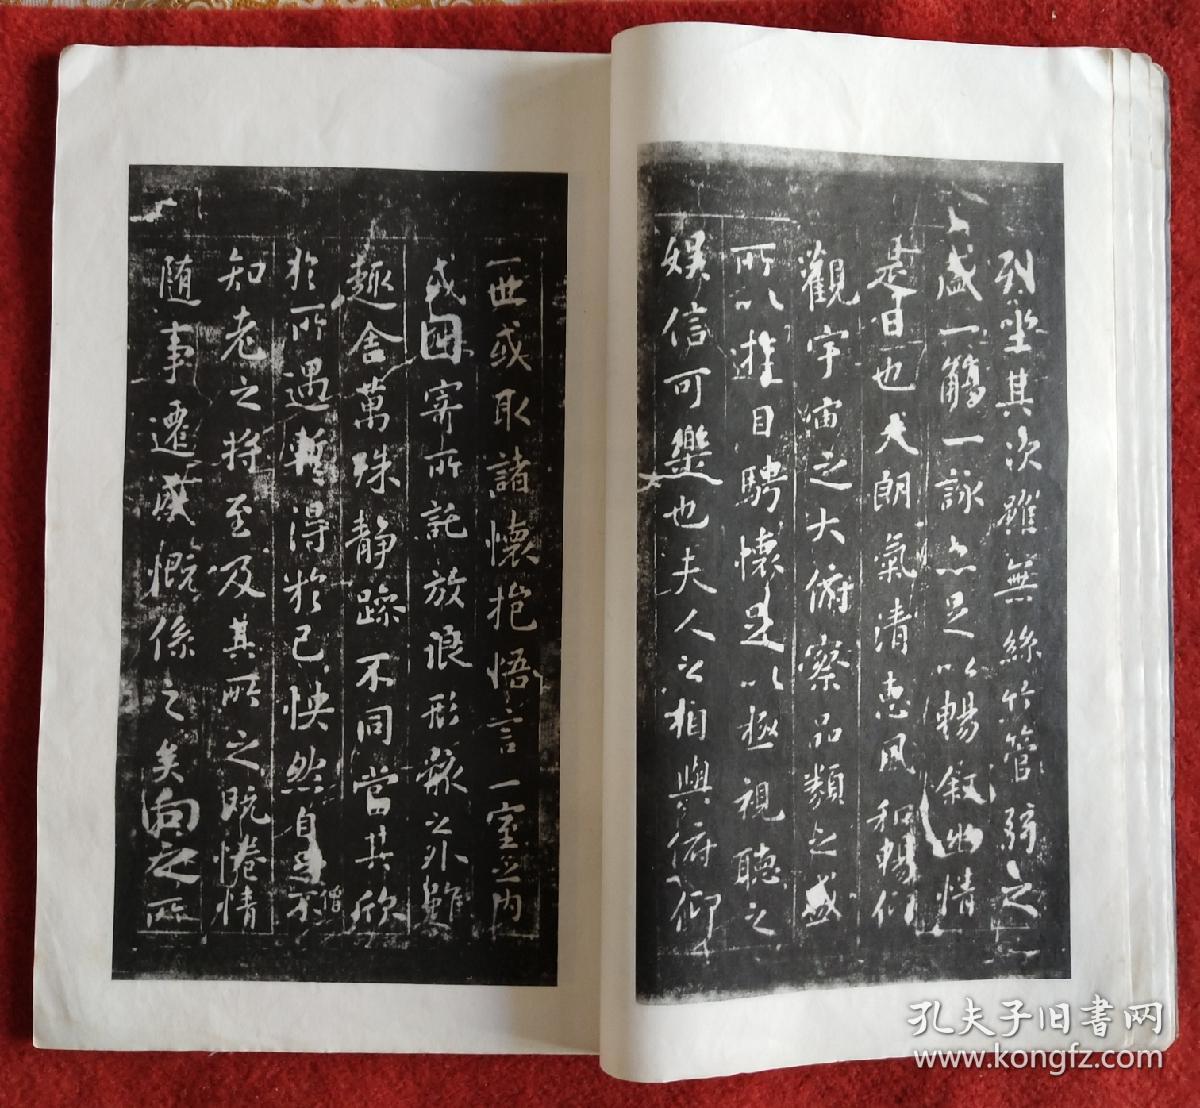 列坐其次雖無絲竹管弦之
盛一觴一詠亦足以暢敘幽情
是日也天朗氣清惠風和暢仰
觀宇宙之大俯察品類之盛
所以遊目騁懷足以極視聽之
娛信可樂也夫人之相與俯仰
一世或取諸懷抱悟言一室之內
或因寄所託放浪形骸之外雖
趣舍萬殊靜躁不同當其欣
於所遇暫得於己怏然自足不
僧
知老之將至及其所之既惓情
隨事遷感慨係之矣向之所
孔夫子旧书网
www.kongfz.com